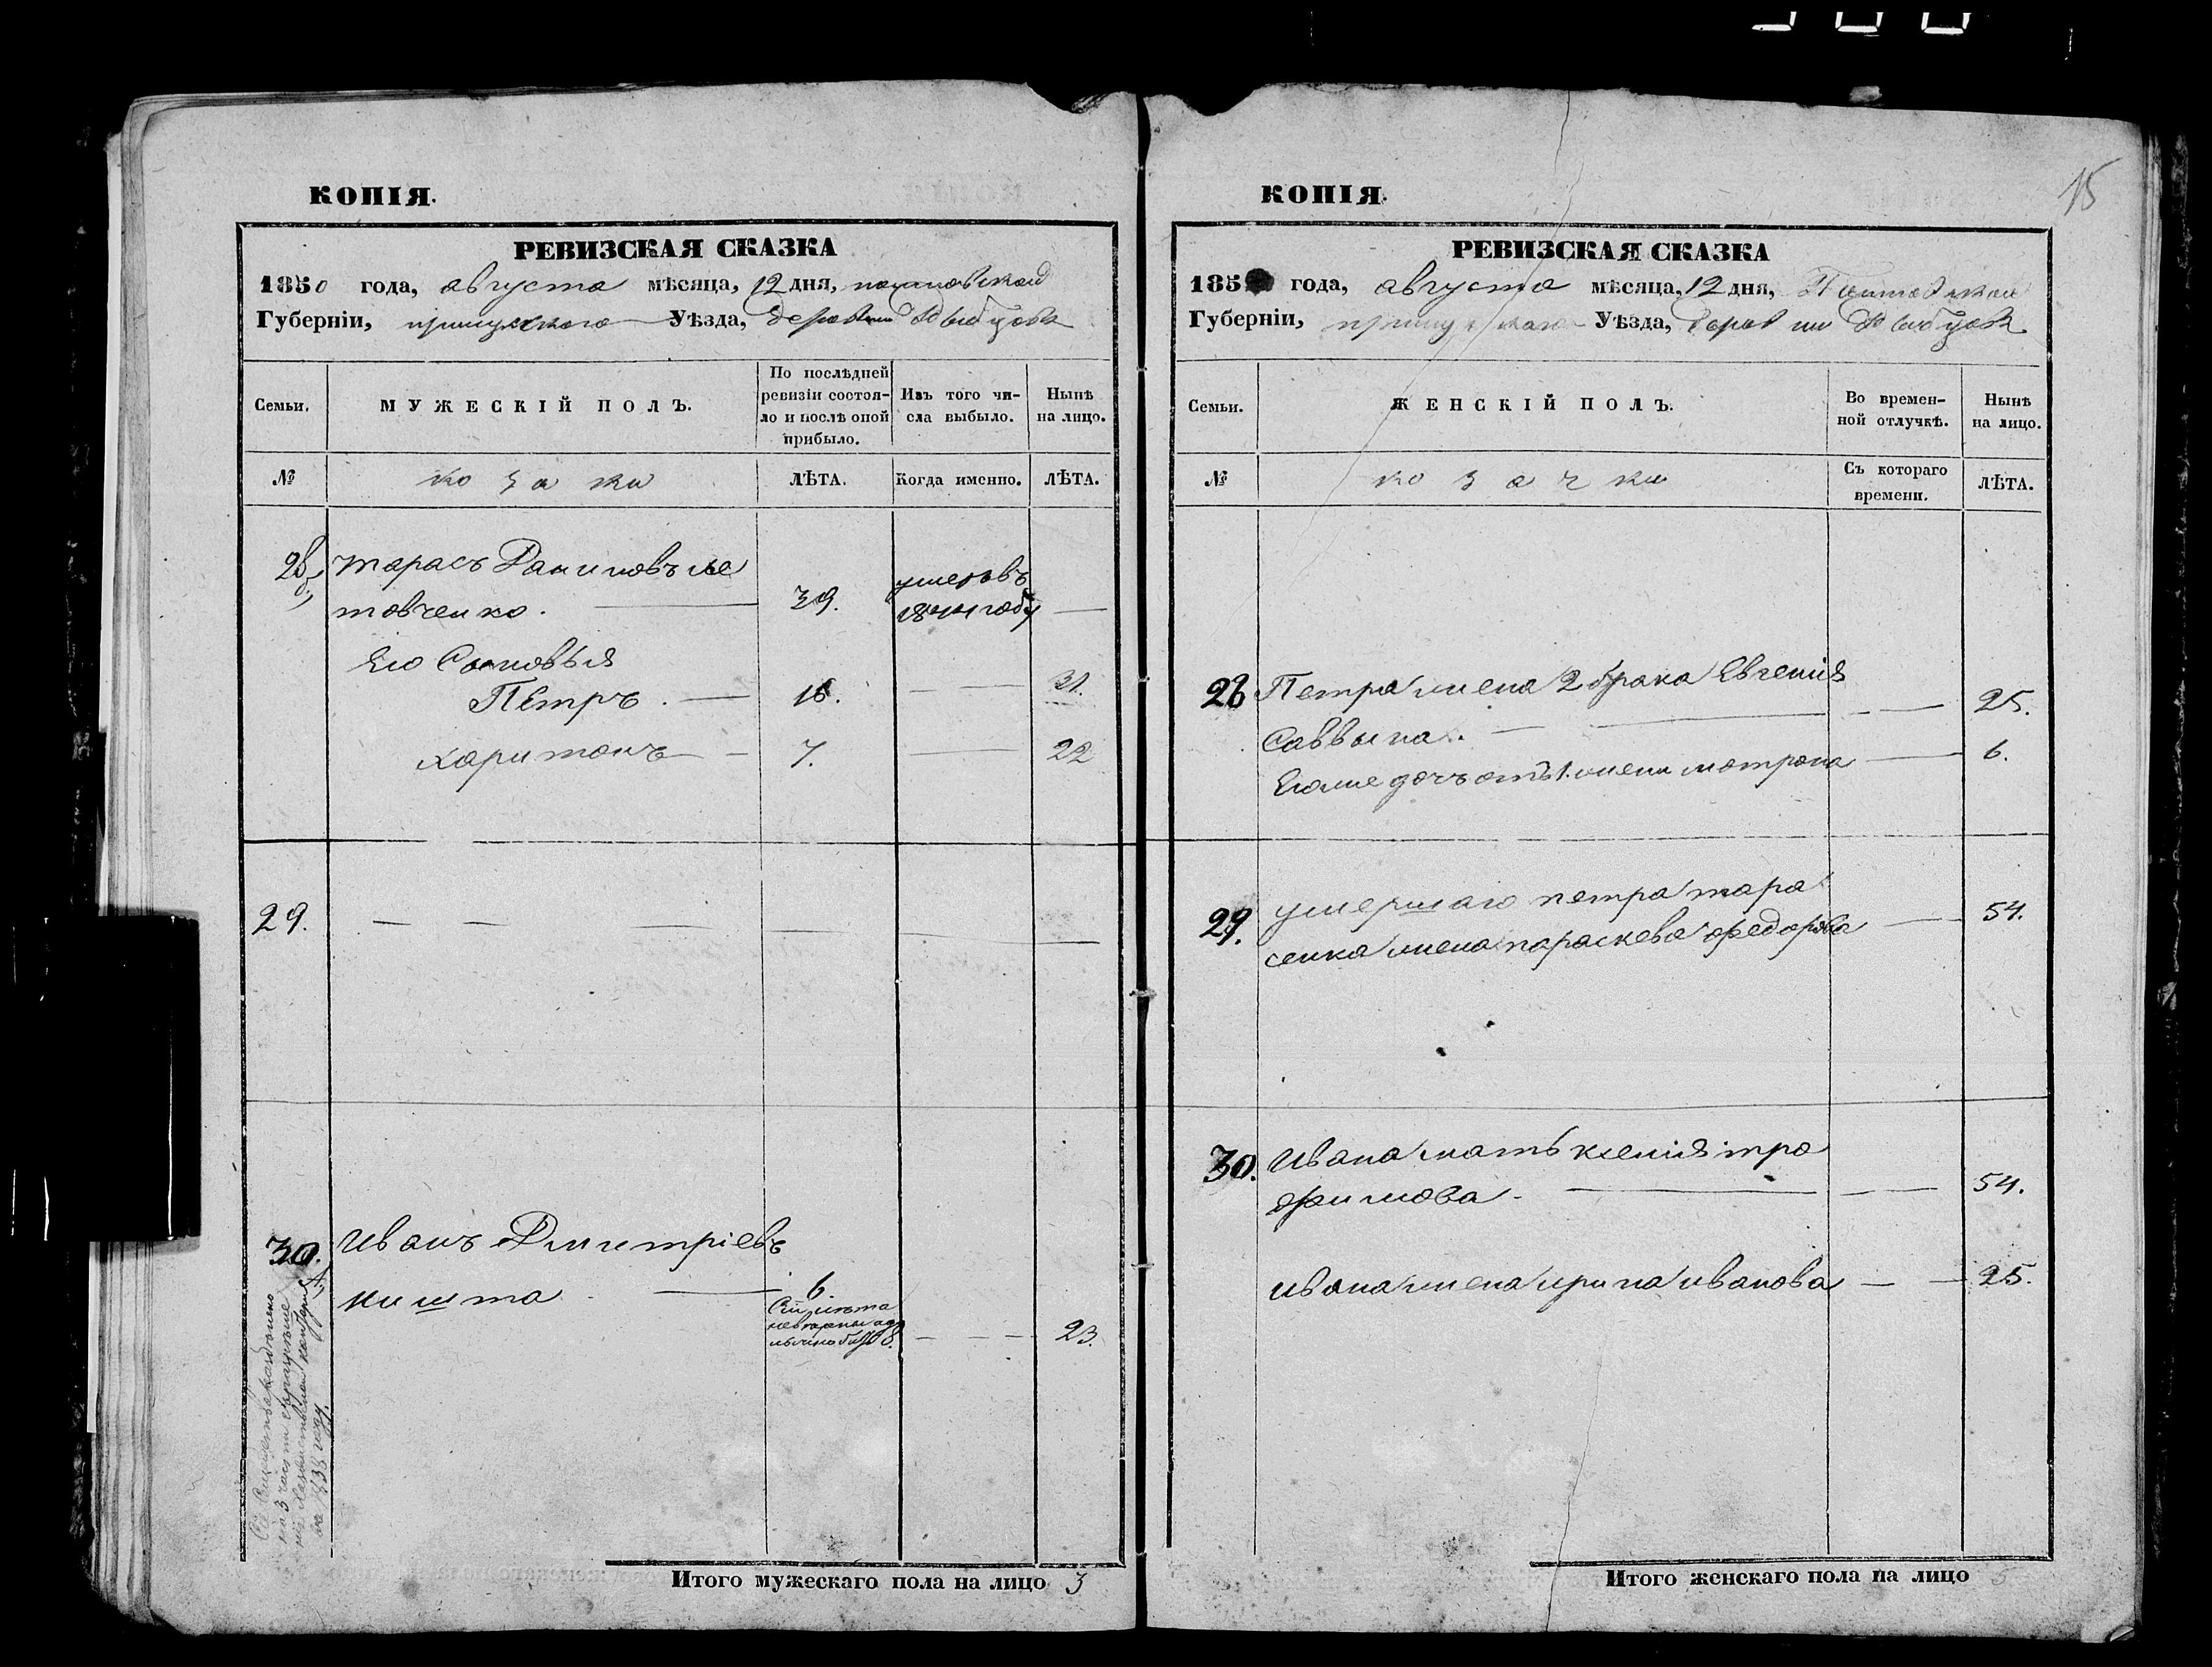 КОПІЯ.
РЕВИЗСКАЯ СКАЗКА
1850 года, августа мѣсяца, 12 дня, полтавской
Губерніи, прилуцкого Уѣзда, деревни
Семьи.
МУЖЕСКІЙ ПОЛЪ.
По послѣдней ревизіи состоя-
ло и послѣ оной прибыло.
Изъ того чи-
сла выбыло.
Нынѣ
на лицо.
№
козаки
ЛѢТА.
Когда именно.
ЛѢТА.
Тарасъ Даниловъ ле
товченко. 39. умеръ въ 1844 году —
Его Сыновья
Петръ. — 16. — — 31.
Харитонъ — 7. — 22
29. — — — — — —
30. Иванъ Дмитріевъ
кишта — 6.
— — — 23.
1838 году.
Итого мужескаго пола на лицо 3
15
КОПІЯ.
РЕВИЗСКАЯ СКАЗКА
185 года, августа мѣсяца, 12 дня, Полтавской
Губерніи, прилуцкаго Уѣзда, деревни
Семьи.
ЖЕНСКІЙ ПОЛЪ.
Во времен-
ной отлучкѣ.
Нынѣ
на лицо.
№
козачки
Съ котораго
времени.
ЛѢТА.
Петра жена 2 брака Евгенія
Саввина. — — 25.
Егоже дочь отъ 1. жены мотрона — 6.
29. умершаго петра тара
сенка жена параскева федорова — 54.
30. Ивана мать ксенія тро
фимова. — — 54.
ивана жена ирина иванова — — 25.
Итого женскаго пола на лицо 5